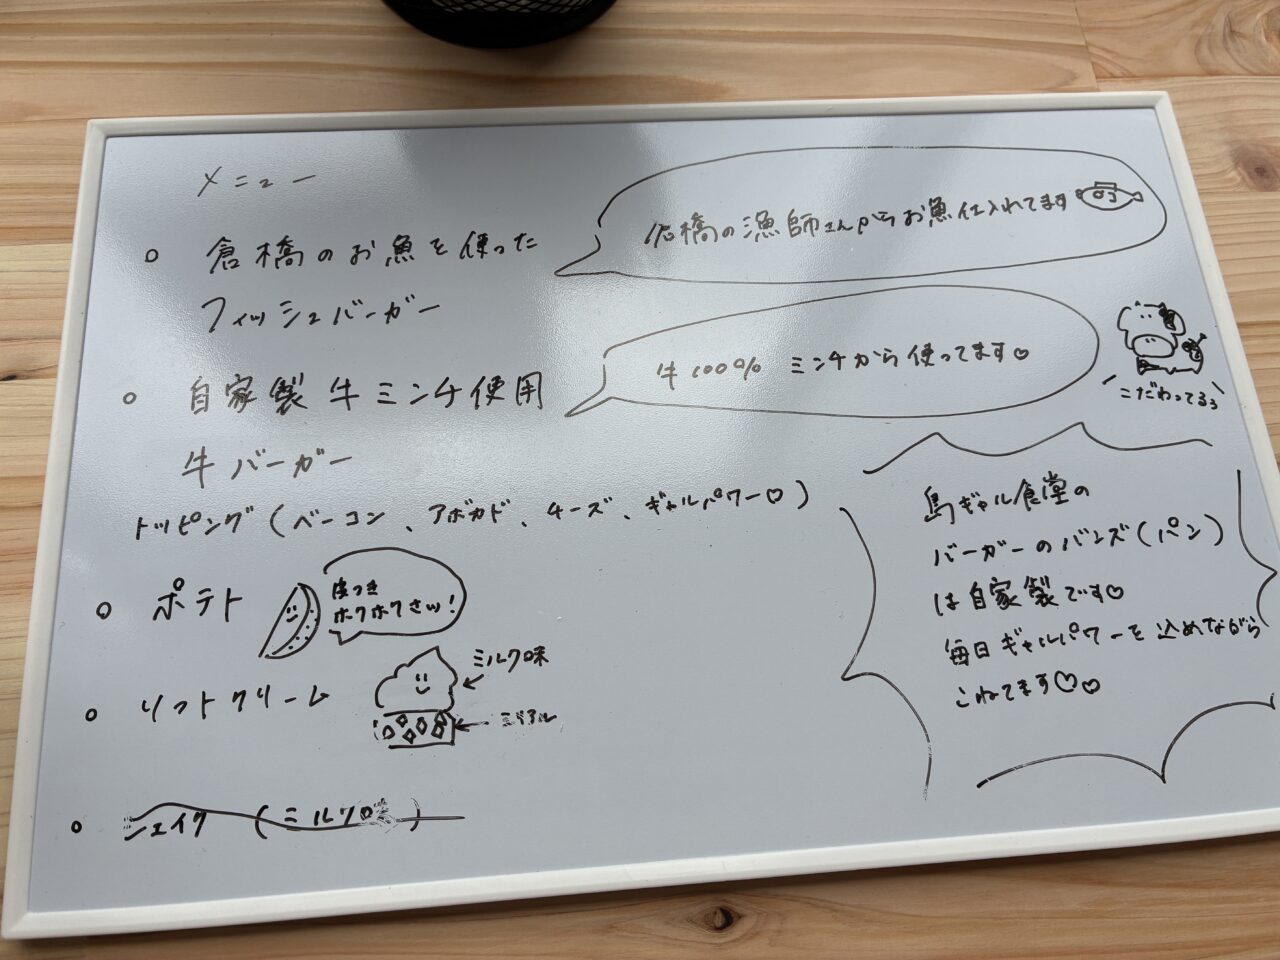 メニュー
倉橋のお魚を使った
フィッシュバーガー
倉橋の漁師さんからお魚仕入れてます
自家製牛ミンチ使用
牛バーガー
牛100% ミンチから使ってます♡
こだわってるぅ
トッピング(ベーコン、アボカド、チーズ、ギャルパワー♡)
ポテト
皮つき
ホクホクさッ!
ソフトクリーム
ミルク味
シェイク (ミルク味)
島ギャル食堂の
バーガーのバンズ(パン)
は自家製です♡
毎日ギャルパワーを込めながら
こねてます♡♡